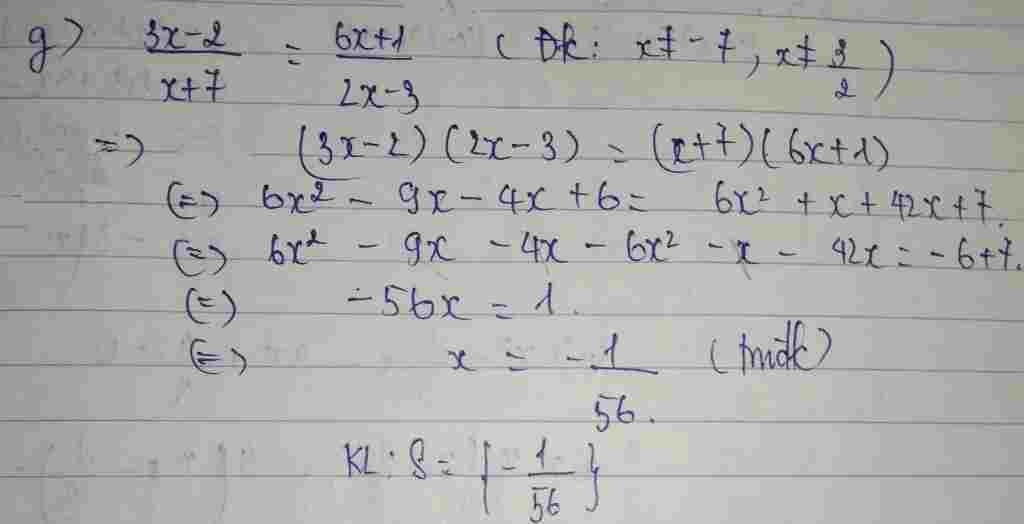 g) (3x-2)/(x+7) = (6x+1)/(2x-3) (Đk: x≠-7, x≠3/2)
=> (3x-2)(2x-3) = (x+7)(6x+1)
(=) 6x² - 9x - 4x + 6 = 6x² + x + 42x + 7.
(=) 6x² - 9x - 4x - 6x² - x - 42x = -6+7.
(=) -56x = 1.
(=) x = -1/56. (tmđk)
KL: S = {-1/56}